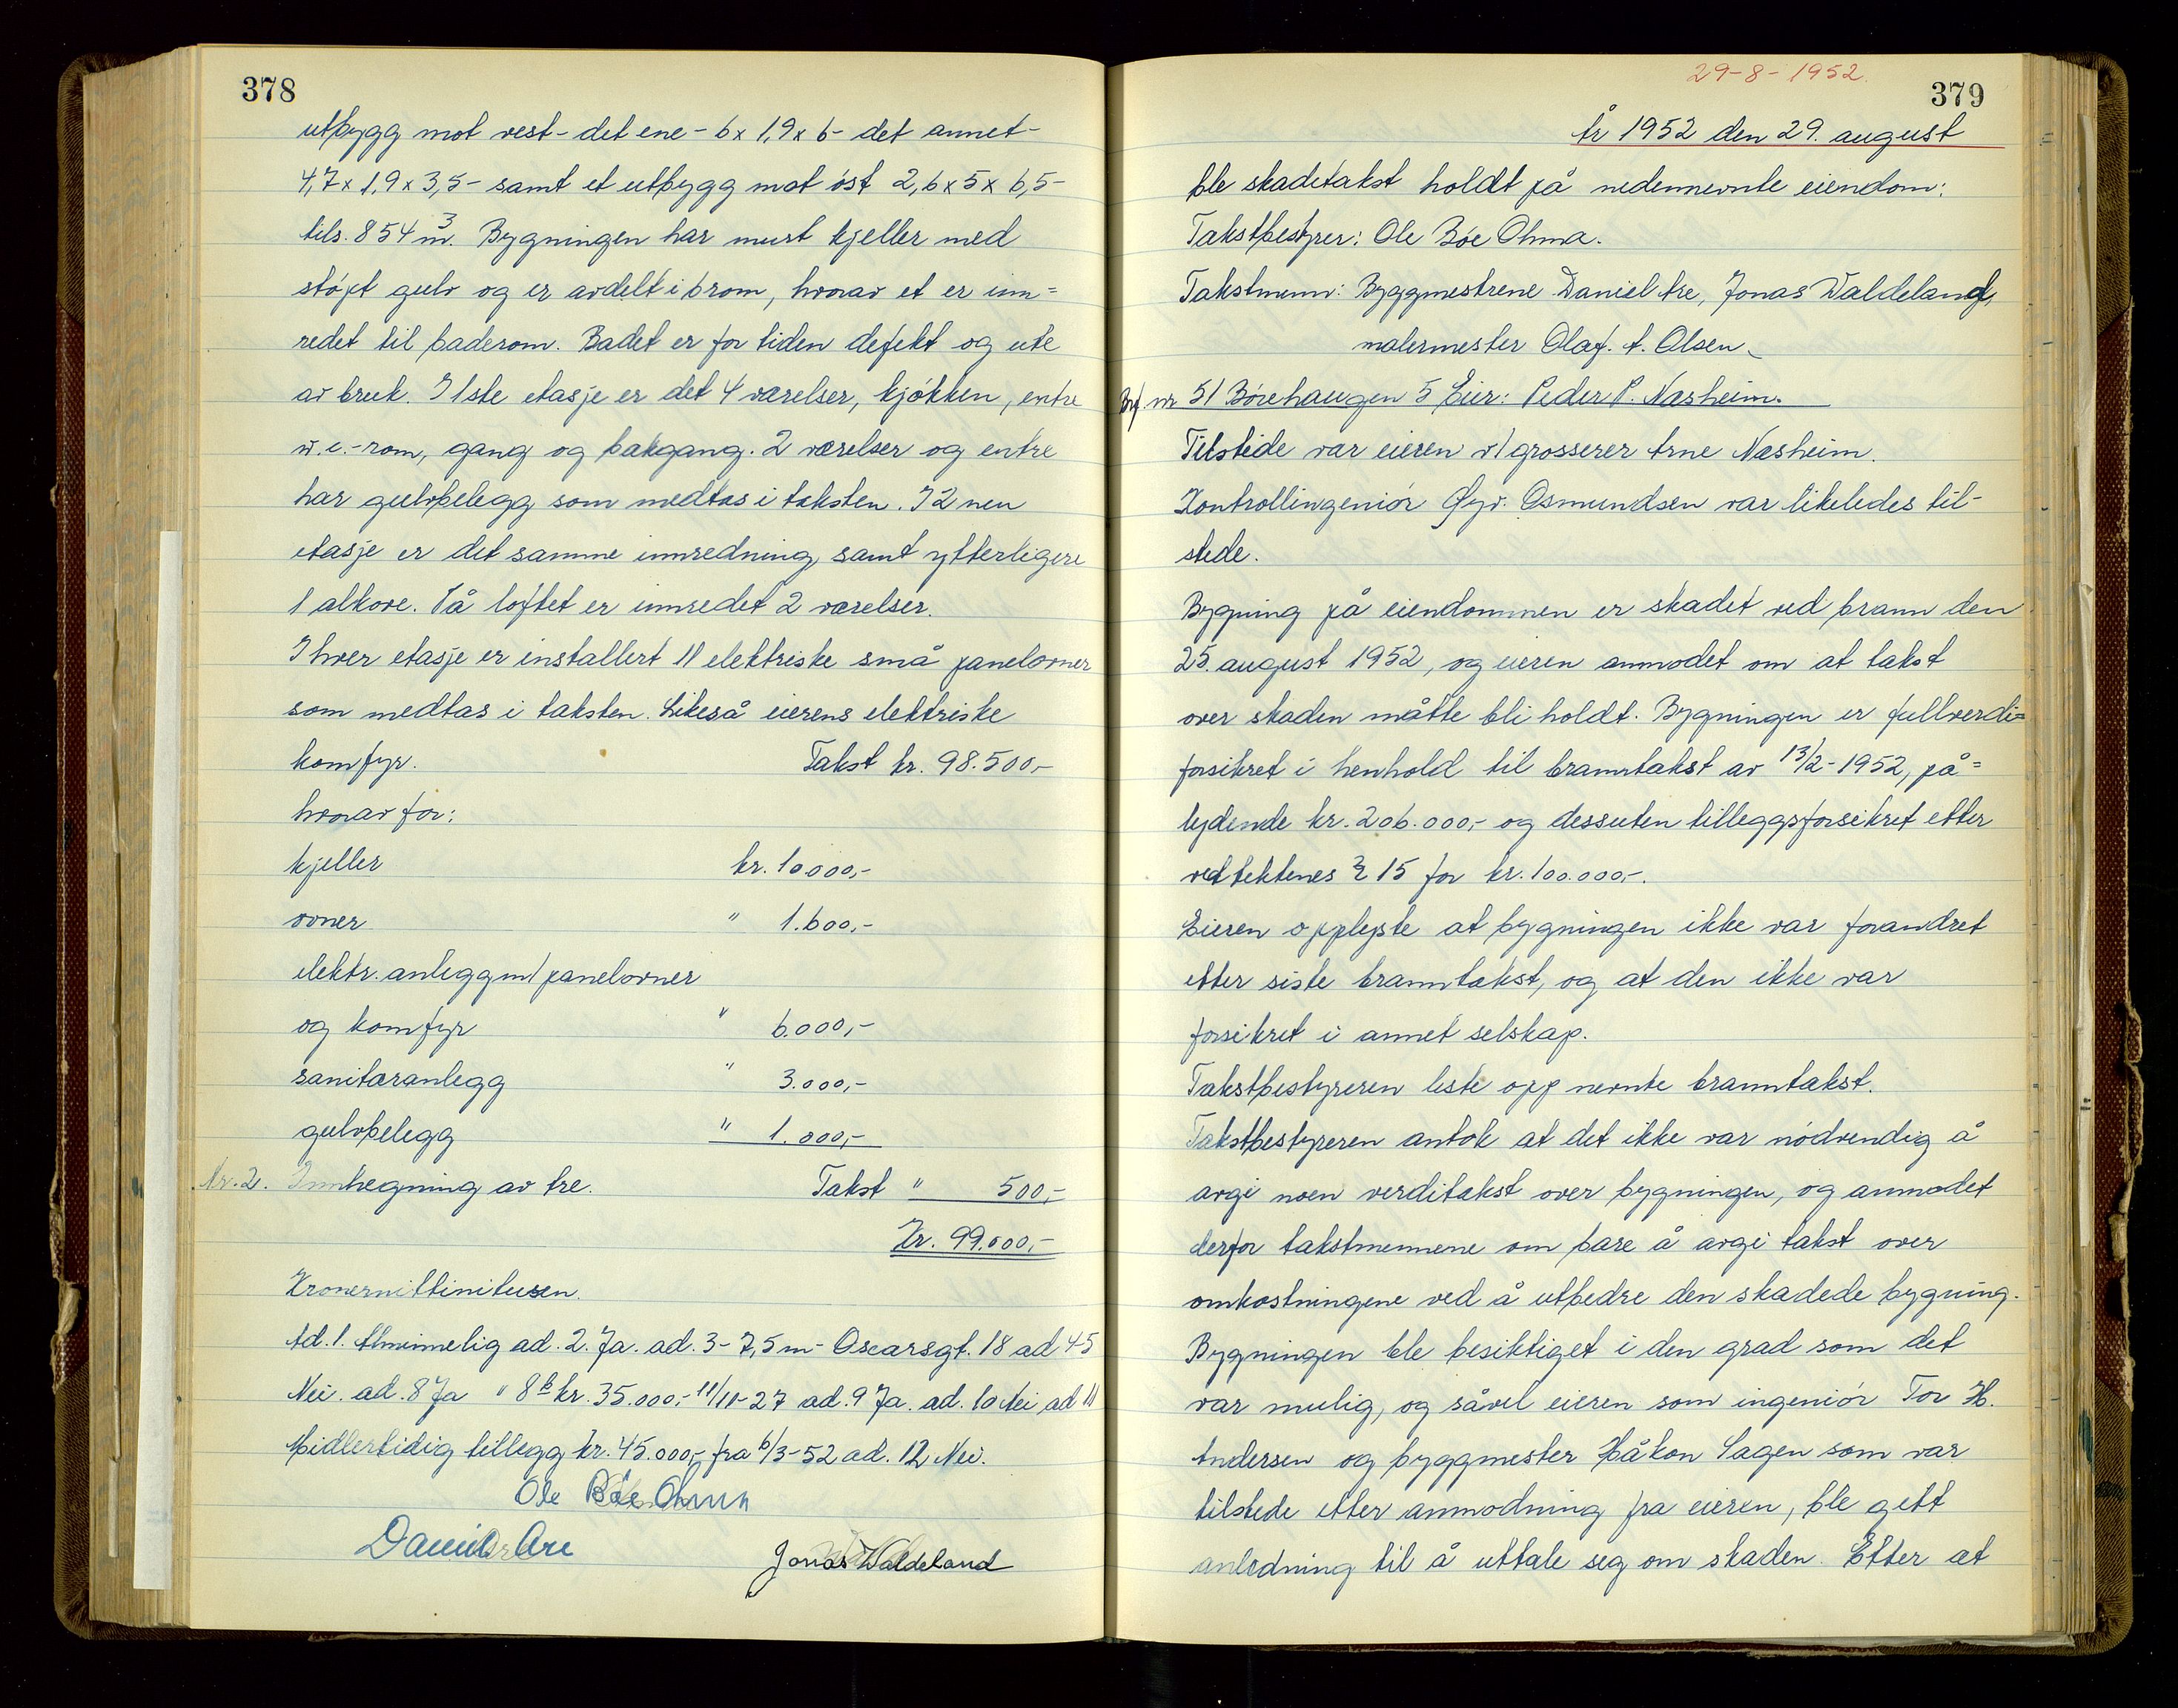 378
utbygg mot vest - det ene - 6 x 1,9 x 6 - det annet -
4,7 x 1,9 x 3,5 - samt et utbygg mot øst 2,6 x 5 x 6,5 -
tils. 854 m³. Bygningen har murt kjeller med
støpt gulv og er avdelt i 6 rom, hvorav et er inn=
redet til baderom. Badet er for tiden defekt og ute
av bruk. I 1ste etasje er det 4 værelser, kjøkken, entre
w.c.-rom, gang og bakgang. 2 værelser og entre
har gulvbelegg som medtas i taksten. I 2nen
etasje er det samme innredning, samt ytterligere
1 alkove. På loftet er innredet 2 værelser.
I hver etasje er installert 11 elektriske små panelovner
som medtas i taksten. Likeså eierens elektriske
komfyr. Takst kr. 98.500,-
hvorav for:
kjeller kr. 10.000,-
ovner " 1.600,-
elektr. anlegg m/ panelovner
og komfyr " 6.000,-
sanitæranlegg " 3.000,-
gulvbelegg " 1.000,-
Nr. 2. Innhegning av tre. Takst " 500,-
Kr. 99.000,-
Kronernittinitusen.
Ad. 1. Alminnelig ad. 2. Ja. ad. 3 - 7,5 m - Oscarsgt. 18 ad 45
Nei. ad. 8 Ja " 8 b kr. 35.000,- 11/11-27 ad. 9 Ja. ad. 10 Nei ad 11
Midlertidig tillegg kr. 45.000,- fra 6/3-52 ad. 12 Nei.
Ole Bøe Ohma
Daniel Are
Jonas Waldeland
29-8-1952.
379
År 1952 den 29. august
ble skadetakst holdt på nedennevnte eiendom:
Takstbestyrer: Ole Bøe Ohma.
Takstmenn: Byggmestrene Daniel Are, Jonas Waldeland,
malermester Olaf. A. Olsen.
nr 51 Børehaugen 5 Eier: Peder P. Næsheim.
Tilstede var eieren v/ grosserer Arne Næsheim.
Kontrollingeniør Gyv. Osmundsen var likeledes til-
stede.
Bygning på eiendommen er skadet ved brann den
25. august 1952, og eieren anmodet om at takst
over skaden måtte bli holdt. Bygningen er fullverdi=
forsikret i henhold til branntakst av 13/2-1952, på=
lydende kr. 206.000,- og dessuten tilleggsforsikret etter
vedtektenes § 15 for kr. 100.000,-.
Eieren opplyste at bygningen ikke var forandret
etter siste branntakst, og at den ikke var
forsikret i annet selskap.
Takstbestyreren leste opp nevnte branntakst.
Takstbestyreren antok at det ikke var nødvendig å
avgi noen verditakst over bygningen, og anmodet
derfor takstmennene om bare å avgi takst over
omkostningene ved å utbedre den skadede bygning.
Bygningen ble besiktiget i den grad som det
var mulig, og såvel eieren som ingeniør Tor H.
Andersen og byggmester Håkon Sagen som var
tilstede etter anmodning fra eieren, ble gitt
anledning til å uttale seg om skaden. Etter at